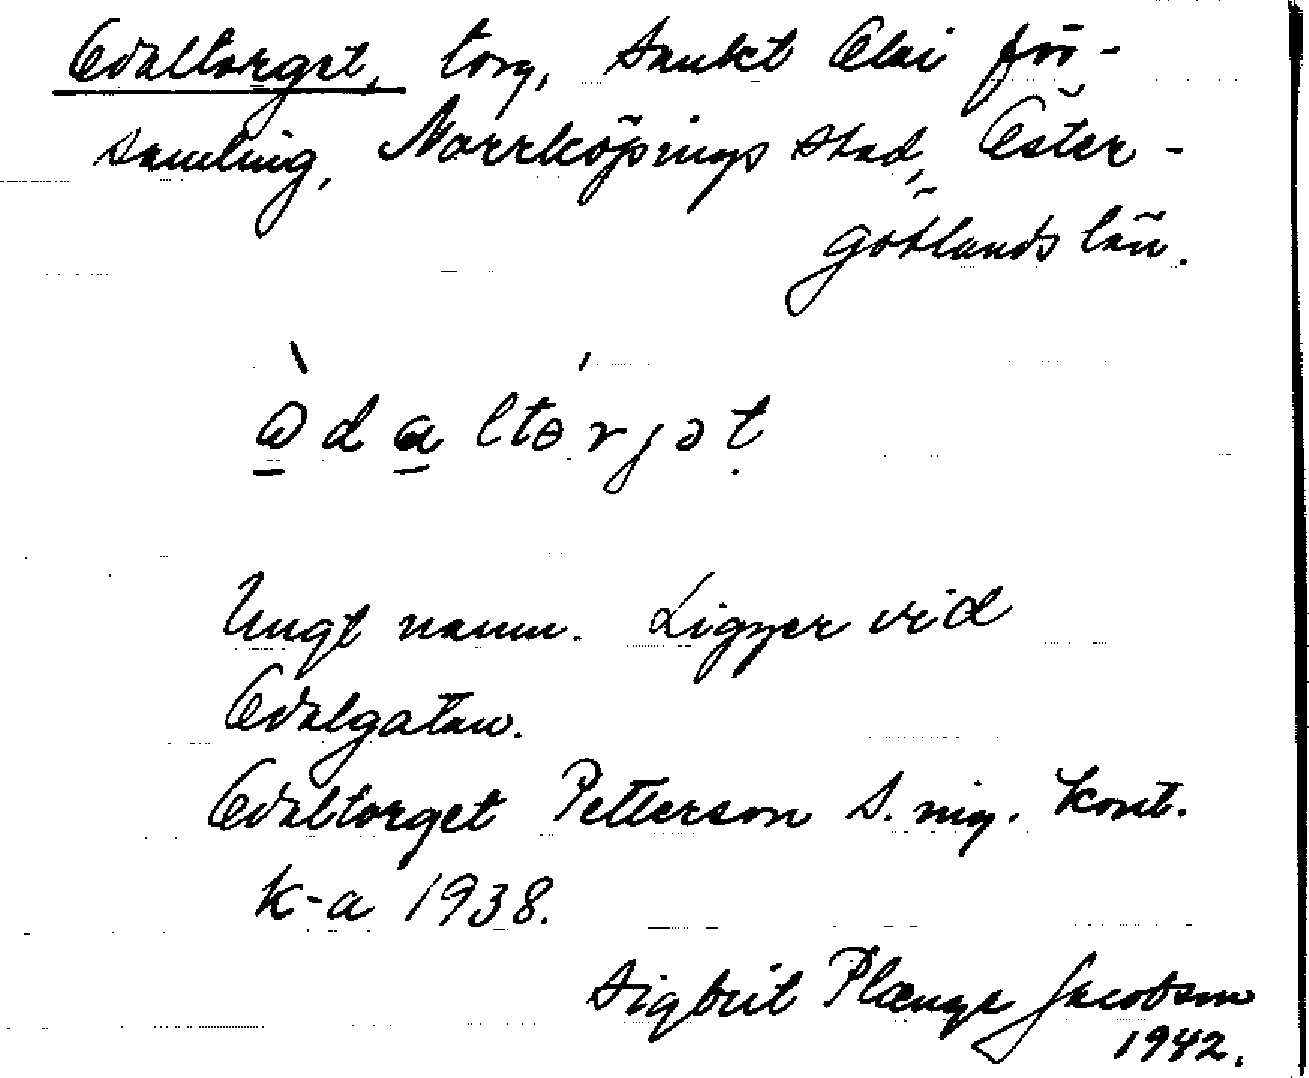 Odaltorget, torg, Sankt Olai för-
samling, Norrköpings stad, Öster-
götlands län.
òdaltórjət
Ungt namn. Ligger vid
Odalgatan.
Odaltorget Petterson S. nig. Kont.
k-a 1938.
Sigbrit Plænge Jacobson
1942.